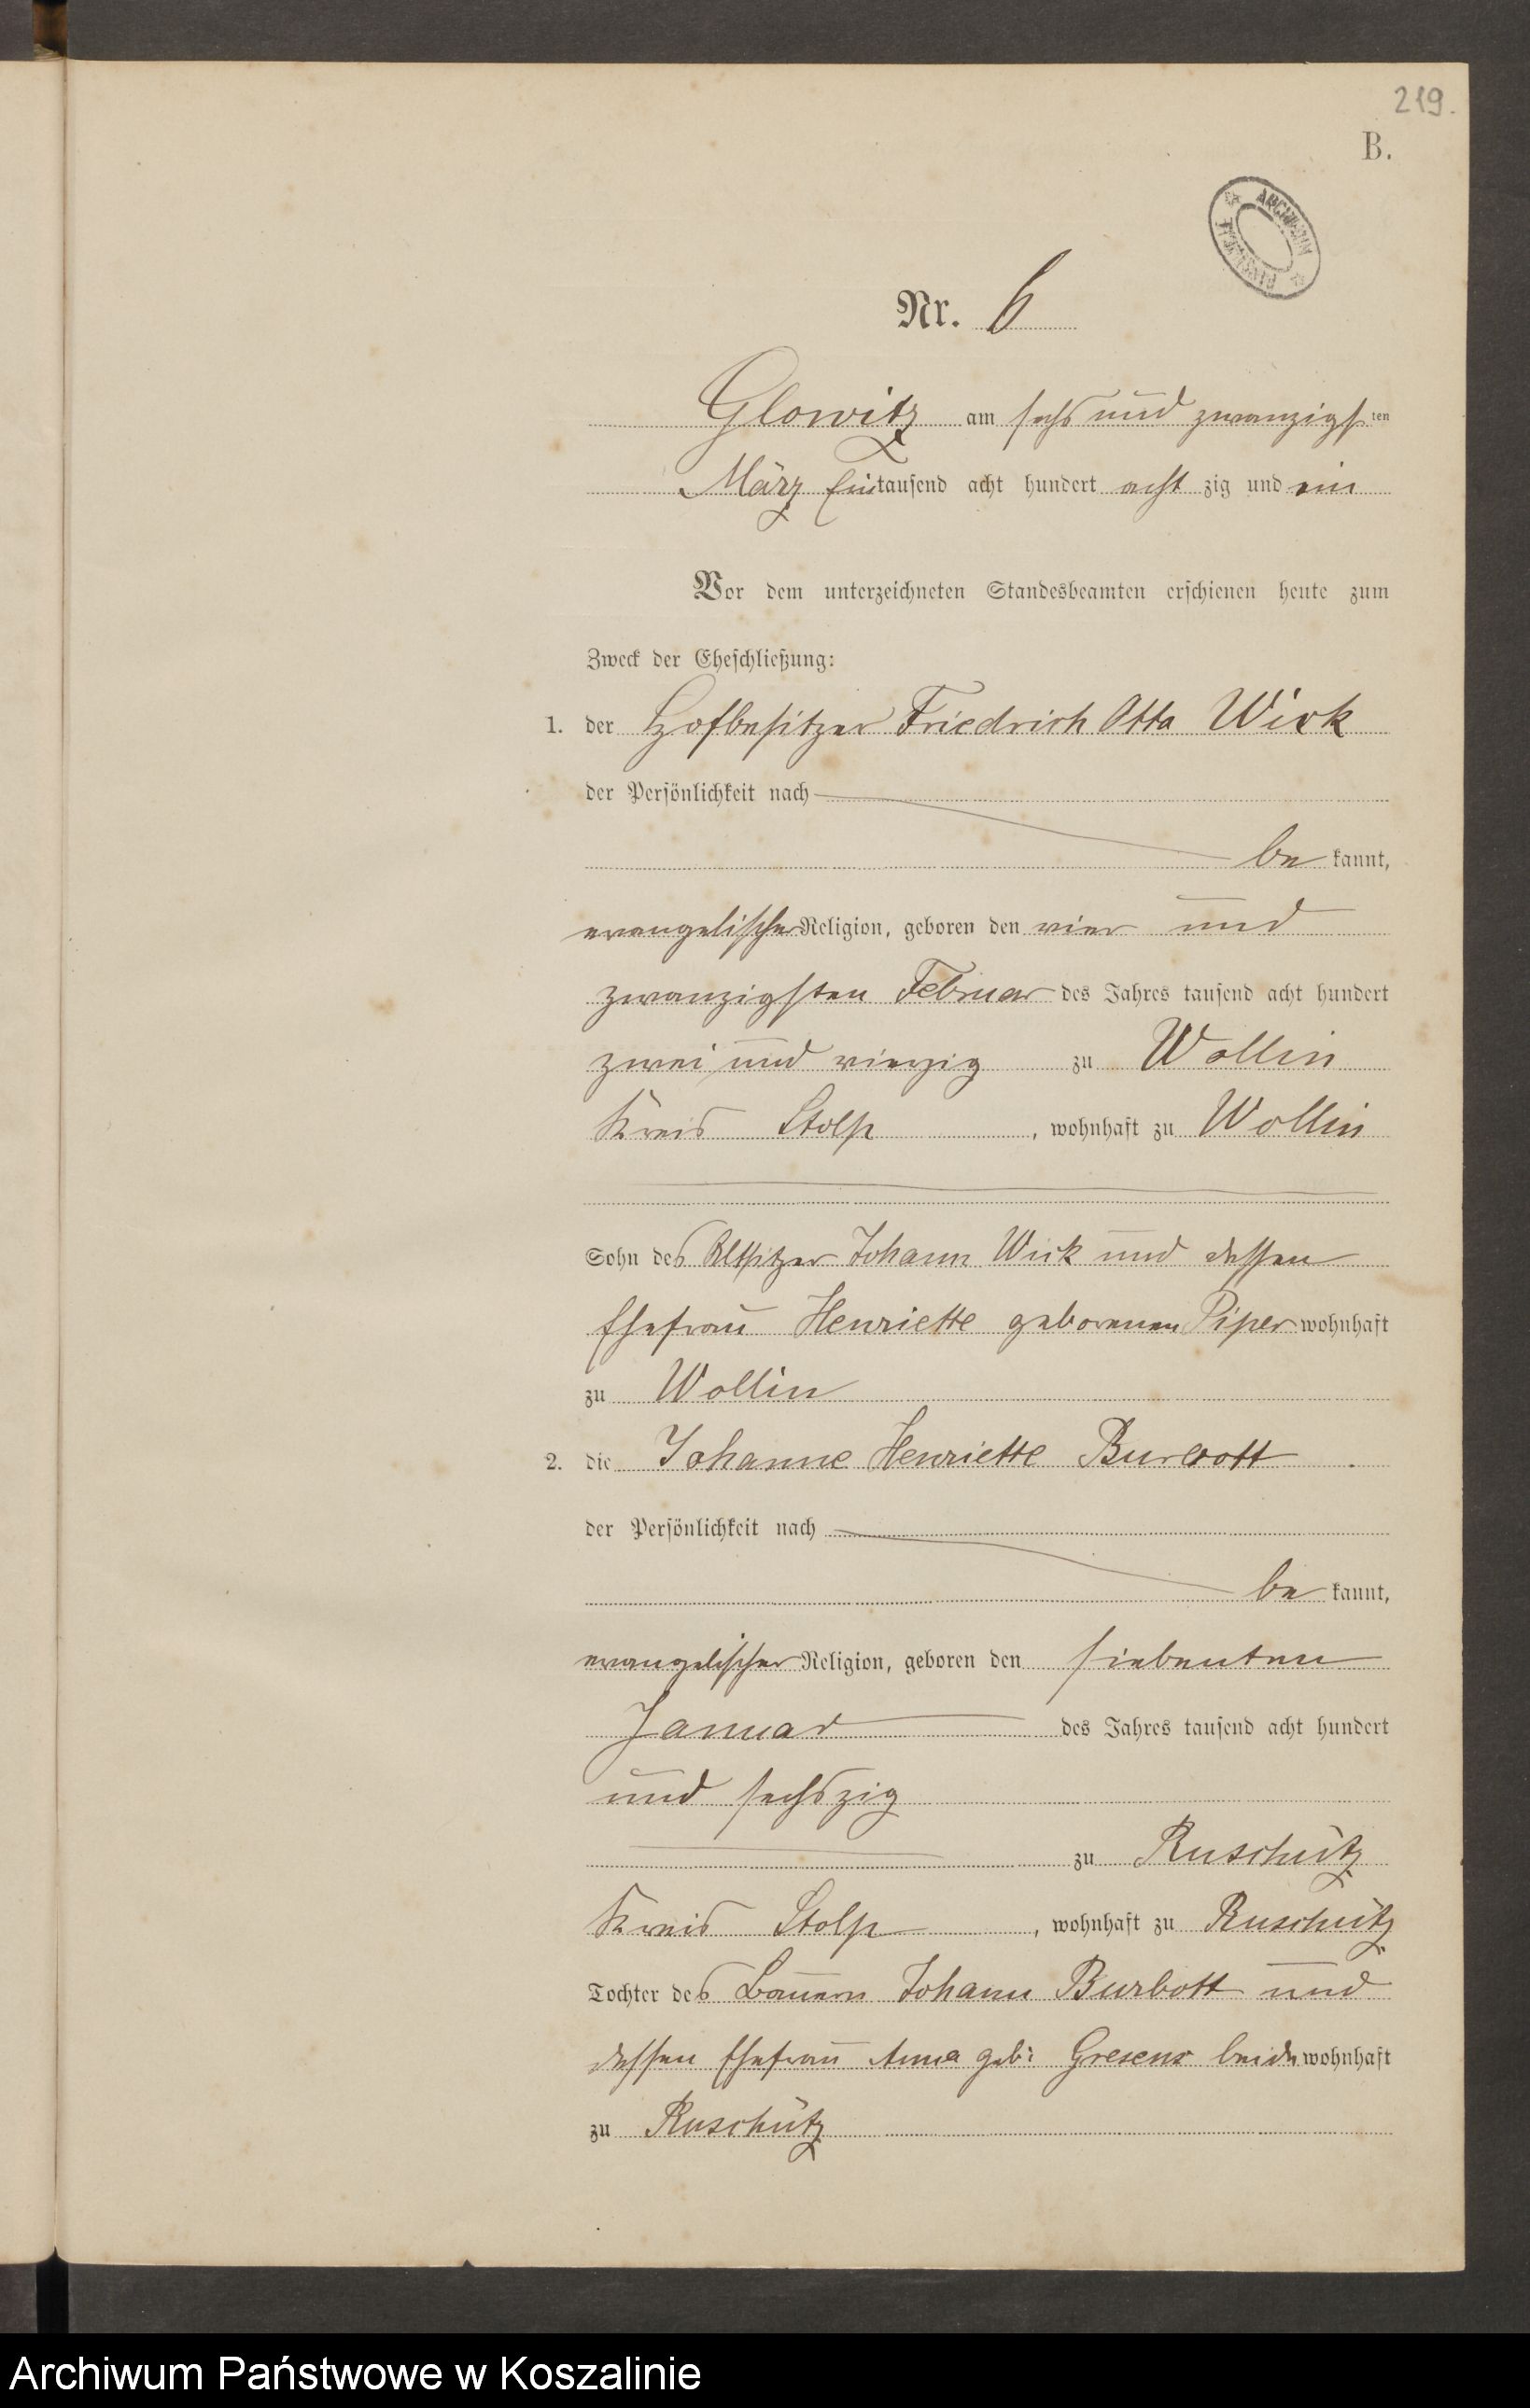 219.
B.
ARCHIWUM PAŃSTWOWE
Nr. 6
Glowitz am sechs und zwanzigsten
März Eintausend acht hundert acht zig und ein
Vor dem unterzeichneten Standesbeamten erschienen heute zum
Zweck der Eheschließung:
1. der Hofbesitzer Friedrich Otto Wick
der Persönlichkeit nach
be kannt,
evangelischer Religion, geboren den vier und
zwanzigsten Februar des Jahres tausend acht hundert
zwei und vierzig zu Wollin
Kreis Stolp, wohnhaft zu Wollin
Sohn des Altsitzer Johann Wick und dessen
Ehefrau Henriette geborenen Piper wohnhaft
zu Wollin
2. die Johanne Henriette Burbott
der Persönlichkeit nach
be kannt,
evangelischer Religion, geboren den siebenten
Januar des Jahres tausend acht hundert
und sechszig
zu Ruschütz
Kreis Stolp, wohnhaft zu Ruschütz
Tochter des Bauern Johann Burbott und
dessen Ehefrau Anna geb: Gresens beide wohnhaft
zu Ruschütz
Archiwum Państwowe w Koszalinie